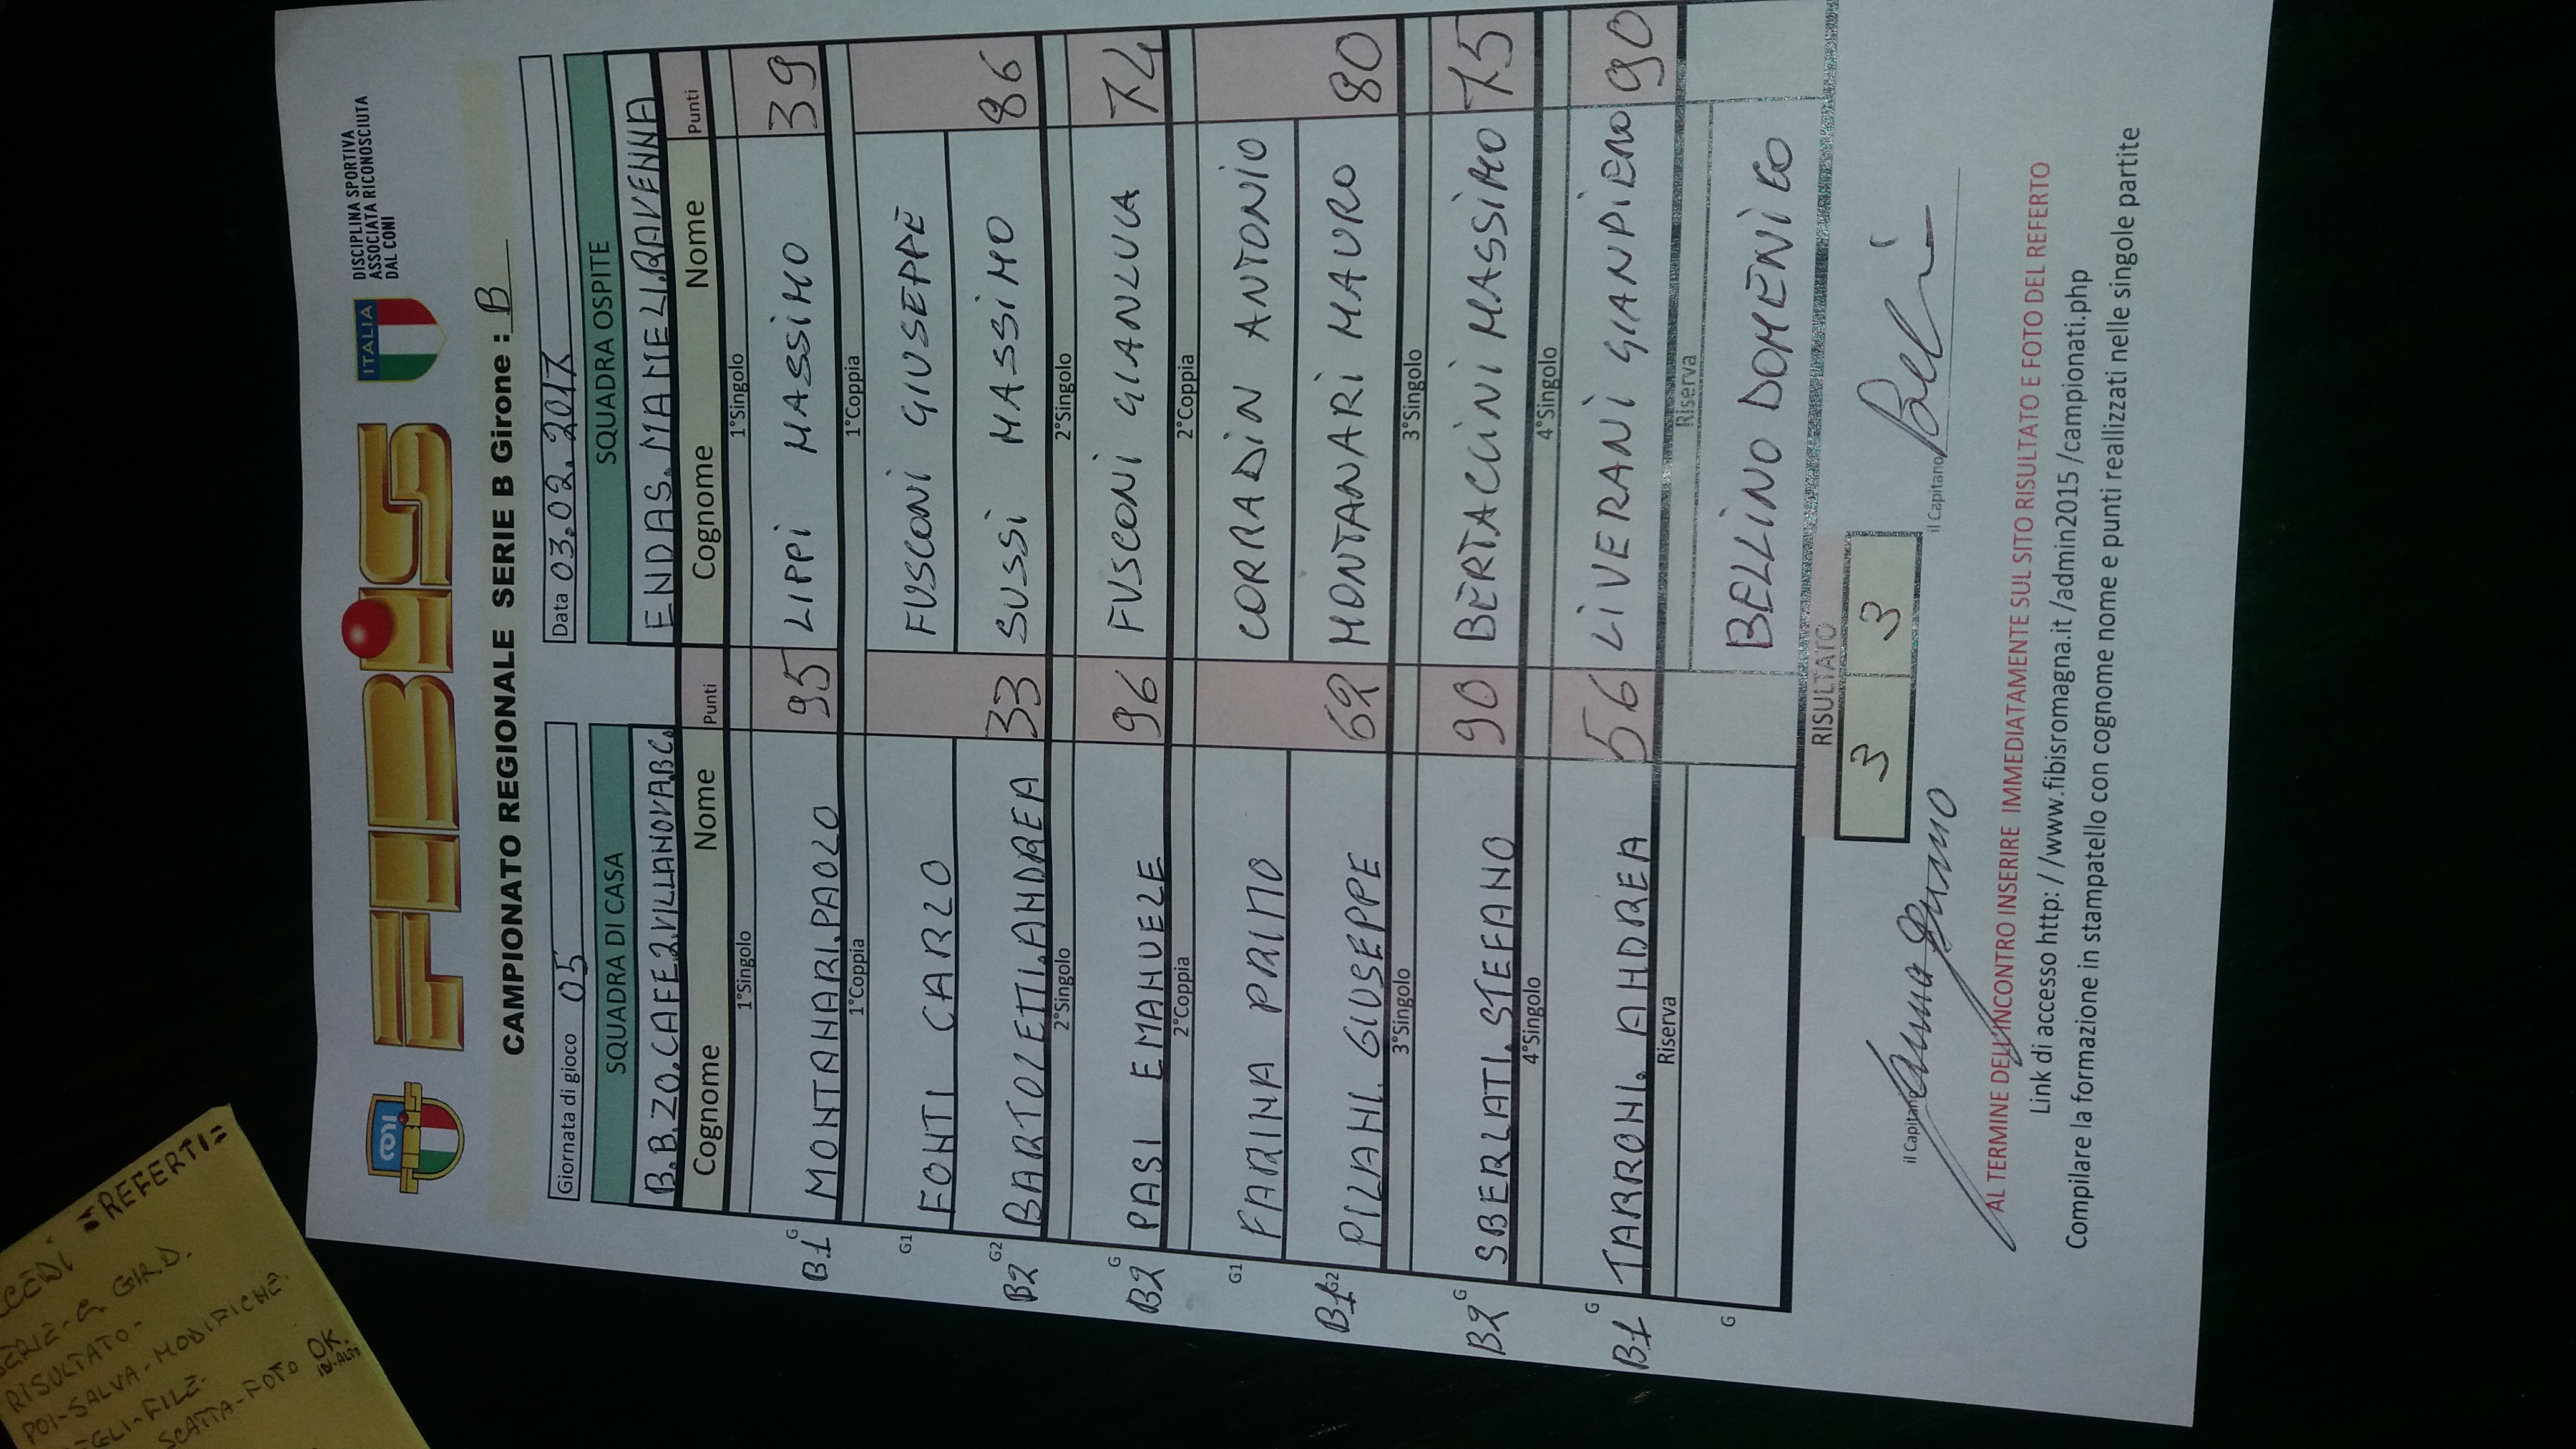 CONI
FIBiS
FIBiS
ITALIA
DISCIPLINA SPORTIVA
ASSOCIATA RICONOSCIUTA
DAL CONI
CAMPIONATO REGIONALE SERIE B Girone : B
Giornata di gioco 05 Data 03.02.2017
SQUADRA DI CASA SQUADRA OSPITE
B.B.ZO.CAFE2.VILLANOVA.B.C. ENDAS.MATELI.RAVENNA
Cognome Nome Punti Cognome Nome Punti
1°Singolo 1°Singolo
B.1 G MONTANARI.PAOLO 95 LIPPI MASSIMO 39
1°Coppia 1°Coppia
G1 FONTI CARLO FUSCONI GIUSEPPE
B2 G2 BARTOLETTI.ANDREA 33 SUSSI MASSIMO 86
2°Singolo 2°Singolo
B2 G PASI EMANUELE 96 FUSCONI GIANLUCA 74
2°Coppia 2°Coppia
G1 FARINA PRIMO CORRADIN ANTONIO
B1 G2 PILANI. GIUSEPPE 62 MONTANARI MAURO 80
3°Singolo 3°Singolo
B2 G SBERLATI.STEFANO 90 BERTACCINI MASSIMO 75
4°Singolo 4°Singolo
B.1 G TARRONI. ANDREA 56 LIVERANI GIANPIERO 90
Riserva Riserva
G BELLINO DOMENICO
RISULTATO
3 3
il Capitano il Capitano
AL TERMINE DELL'INCONTRO INSERIRE IMMEDIATAMENTE SUL SITO RISULTATO E FOTO DEL REFERTO
Link di accesso http: / /www.fibisromagna.it /admin2015 /campionati.php
Compilare la formazione in stampatello con cognome nome e punti reallizzati nelle singole partite
"REFERTI=
GIR.D.
RISULTATO-
POI-SALVA-MODIFICHE
FILE.
SCATTA-FOTO OK